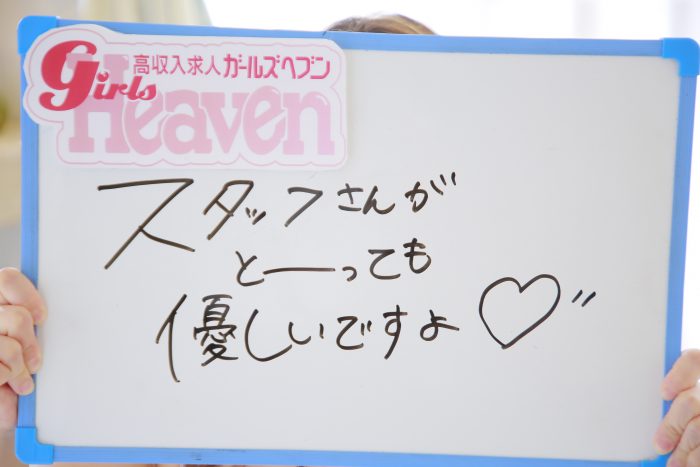 高収入求人ガールズヘブン
Girls
Heaven
スタッフさんが
とーっても
優しいですよ♡〃